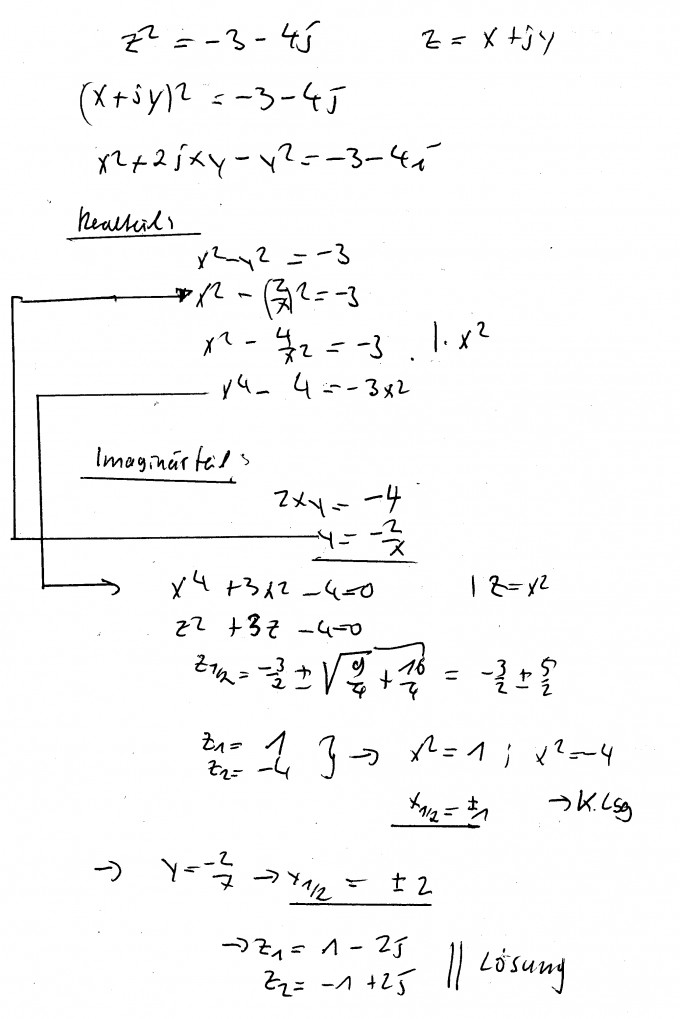 z² = -3 - 4j z = x + jy
(x + jy)² = -3 - 4j
x² + 2jxy - y² = -3 - 4j
Realteil:
x² - y² = -3
x² - (2/x)² = -3
x² - 4/x² = -3 . | · x²
x⁴ - 4 = -3x²
Imaginärteil:
2xy = -4
y = -2/x
x⁴ + 3x² - 4 = 0 | z = x²
z² + 3z - 4 = 0
z1/2 = -3/2 ± √(9/4 + 16/4) = -3/2 ± 5/2
z1 = 1 } → x² = 1 ; x² = -4
z2 = -4
x1/2 = ±1 → K. Lsg
→ y = -2/x → y1/2 = ±2
→ z1 = 1 - 2j || Lösung
z2 = -1 + 2j